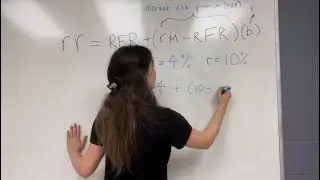 market risk premium (MRP)
rr = RFR + (rM - RFR)(b)
= 4% r = 10%
4 + (10 -